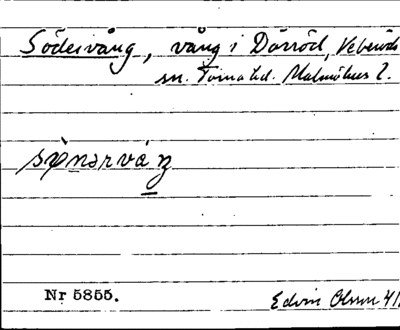 Södervång, vång i Dörröd, Veberöds
sn. Torna hd. Malmöhus l.
sø̀nərváŋ
Nr 5855.
Edvin Olsson 41